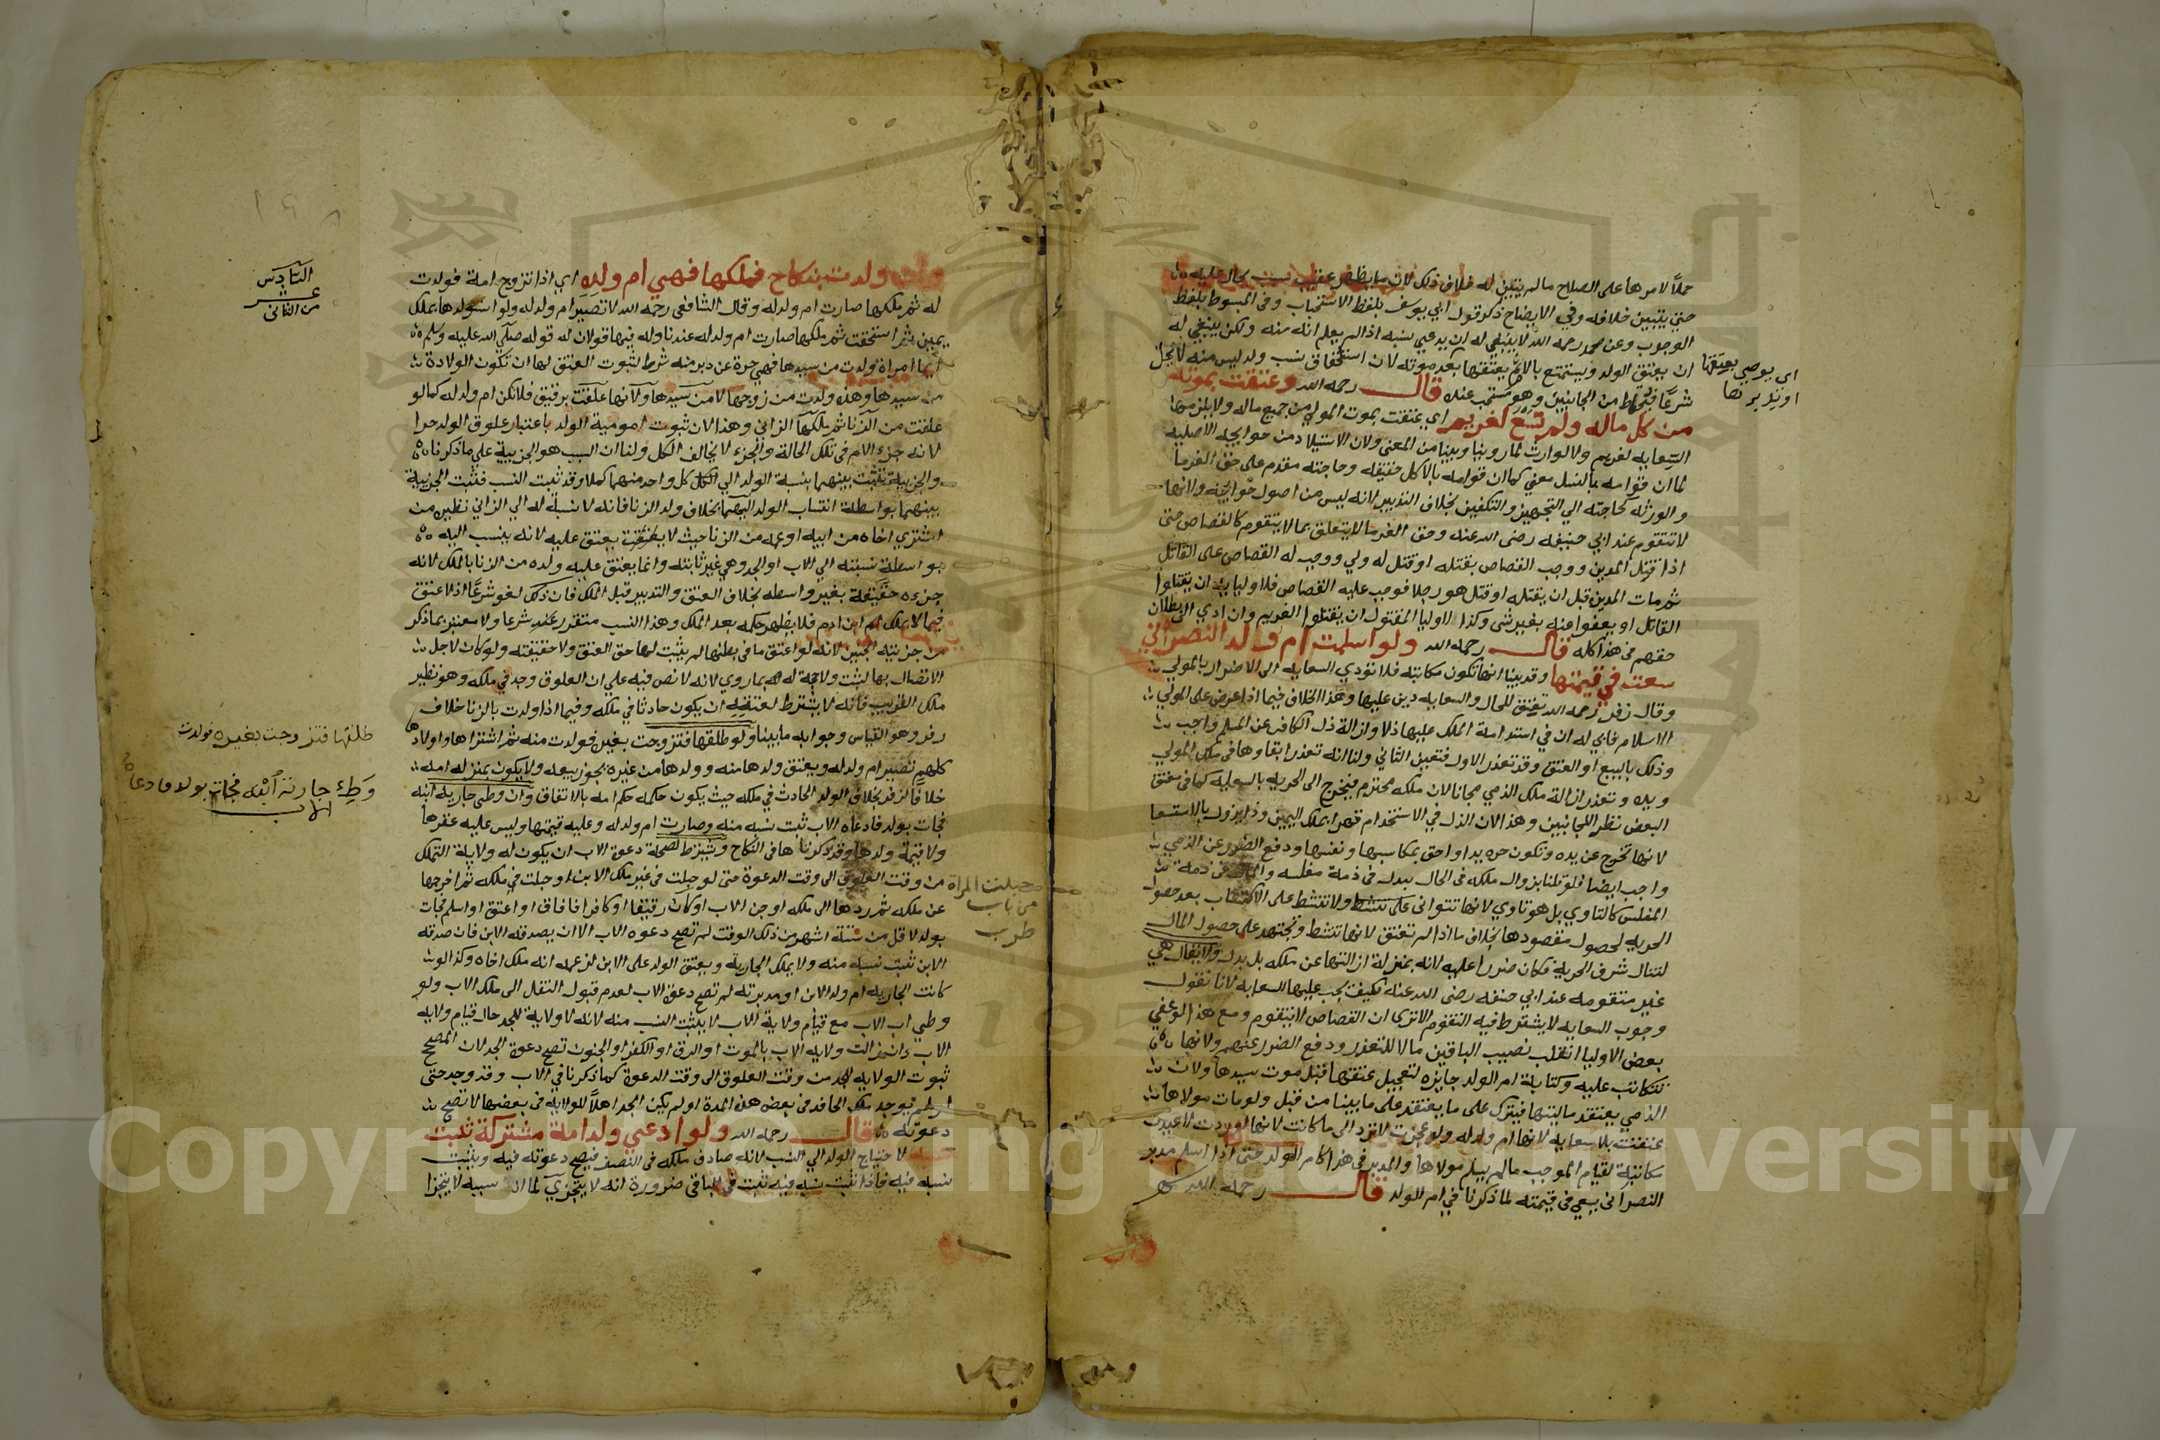 حملاً لامرها على الصلاح مالم يتبين له خلاف ذلك لان ما يظهر عقيب سبب يحال عليه
حتى يتبين خلافه وفي الايضاح ذكر قول ابي يوسف بلفظ الاستحباب وفي المبسوط بلفظ
الوجوب وعن محمد رحمه الله لا ينبغي له ان يدعي نسبه اذا لم يعلم انه منه ولكن ينبغي له
ان يعتق الولد ويستمتع بالام يعتقها بعد موته لان استلحاق نسب ولد ليس منه لا يحل
شرعًا فيحتاط من الجانبين وهو مستحب عنده قال رحمه الله وعتقت بموته
من كل ماله ولم تسع لغريم اي عتقت بموت المولى من جميع ماله ولا يلزمها
السعاية لغريم ولا لوارث لما روينا وبينا من المعنى ولان الاستيلاد من حوايجه الاصلية
لما ان قوامه بالنسل معنى كما ان قوامه بالاكل حقيقة وحاجته مقدم على حق الغرما
والورثة كحاجته الي التجهيز والتكفين بخلاف التدبير لانه ليس من اصول حوايجه ولانها
لا تتقوم عند ابي حنيفه رضى الله عنه وحق الغرما لا يتعلق بما لا يتقوم كالقصاص حتى
اذا قتل المدين ووجب القصاص بقتله او قتل له ولي ووجب له القصاص على القاتل
ثم مات المدين قبل ان يقتله او قتل هو رجلا فوجب عليه القصاص فلاوليايه ان يقتلوا
القاتل او يعفوا عنه بغير شى وكذا اوليا المقتول ان يقتلوا الغريم وان ادي الى بطلان
حقهم في هذا كله قال رحمه الله ولو اسلمت ام ولد النصراني
سعت في قيمتها وقد بينا انها تكون مكاتبة فلا تؤدي السعاية الى الاضرار بالمولي
وقال زفر رحمه الله تعتق للحال والسعاية دين عليها وهذا الخلاف فيما اذا عرض على المولي
الاسلام فابي له ان في استدامة الملك عليها ذلا وازالة ذل الكافر عن المسلم واجب
وذلك بالبيع او العتق وقد تعذر الاول فتعين الثاني ولنا انه تعذر ابقاوها في ملك المولي
ويده وتعذر ازالة ملك الذمي مجانا لان ملكه محترم فيخرج الى الحرية بالسعاية كما في معتق
البعض نظرا للجانبين وهذا لان الذل في الاستخدام قهرا بملك اليمين وذا يزول بالاستسعا
لانها تخرج عن يده وتكون حره يدا واحق بمكاسبها ونفسها ودفع الضرر عن الذمي
واجب ايضا فلو قلنا بزوال ملكه في الحال ببدل في ذمة مفلسه والمال في ذمة
المفلس كالتاوي بل هو تاوي لانها تتواني ولا تنشط على الاكتساب بعد حصول
الحرية لحصول مقصودها بخلاف ما اذا لم تعتق لانها تنشط وتجتهد على حصول المال
لتنال شرف الحرية فكان ضررا عليه لانه بمنزلة ازالتها عن ملكه بل بدل ولا يقال هي
غير متقومه عند ابي حنيفه رضى الله عنه فكيف يجب عليها السعاية لانا نقول
وجوب السعاية لا يشترط فيه التقوم الا ترى ان القصاص لا يتقوم ومع هذا لو عفي
بعض الاوليا انقلب نصيب الباقين مالا للتعذر ودفع الضرر عنهم ولانها
تتكاتب عليه وكتابة ام الولد جايزه لتعجيل عتقها قبل موت سيدها ولان
الذمي يعتقد ماليتها فيترك على ما يعتقد على ما بينا من قبل ولو مات مولاها
عتقت بلا سعاية لانها ام ولد له ولو عجزت لا ترد الى ما كانت لانها لو ردت لاعيدت
مكاتبة لقيام الموجب مالم يسلم مولاها والمدبر في هذا كام الولد حتى اذا اسلم مدبر
النصراني يسعي في قيمته لما ذكرنا في ام الولد قال رحمه الله
اي يوصي بعتقها
او يدبرها
ولدت بنكاح فملكها فهي ام ولده اي اذا تزوج امة فولدت
له ثم ملكها صارت ام ولد له وقال الشافعي رحمه الله لا تصير ام ولد له ولو استولدها بملك
يمين ثم استحقت ثم ملكها صارت ام ولد له عندنا وله فيها قولان له قوله صلى الله عليه وسلم
ايما امراة ولدت من سيدها فهي حرة عن دبر منه شرط لثبوت العتق لها ان تكون الولادة
من سيدها وهذه ولدت من زوجها لا من سيدها ولانها علقت برقيق فلا تكن ام ولد له كما لو
علقت من الزنا ثم يملكها الزاني وهذا لان ثبوت امومية الولد باعتبار علوق الولد حرا
لانه جزء الام في تلك الحالة والجزء لا يخالف الكل ولنا ان السبب هو الجزيية على ما ذكرنا
والجزيية تثبت بينهما بنسبة الولد الي كل واحد منهما كملا وقد ثبت النسب فتثبت الجزيية
بينهما بواسطة انتساب الولد اليهما بخلاف ولد الزنا فانه لا نسبة له الي الزاني نظيره من
اشتري اخاه من ابيه او عمه من الزنا حيث لا يعتق عليه لانه ينسب اليه
بواسطة نسبته الي الاب او الجد وهي غير ثابتة وانما يعتق عليه ولده من الزنا بالملك لانه
جزءه حقيقة بغير واسطه بخلاف العتق والتدبير قبل الملك فان ذلك لغو شرعًا اذ لا عتق
فيما لا يملك ابن ادم فلا يظهر حكمه بعد الملك وهذا النسب متقرر عنده شرعا ولا معتبر بما ذكر
من جزييه الجنين لانه لو اعتق ما في بطنها لم يثبت لها حق العتق ولا حقيقته ولو كان لاجل
الاتصال بها لثبت ولا حجة له فيما روي لانه لا نص فيه على ان العلوق وجد في ملكه وهو نظير
ملك القريب فانه لا يشترط لعتقه ان يكون حادثا في ملكه وفيما اذا ولدت بالزنا خلاف
زفر وهو القياس وجوابه ما بينا ولو طلقها فتزوجت بغيره فولدت منه ثم اشتراها واولادها
كلهم تصير ام ولد له ويعتق ولدها منه وولدها من غيره يجوز بيعه ولا يكون بمنزلة امه
خلافا لزفر بخلاف الولد الحادث في ملكه حيث يكون حكمه حكم امه بالاتفاق وان وطى جارية ابنه
فجات بولد فادعاه الاب ثبت نسبه منه وصارت ام ولد له وعليه قيمتها وليس عليه عقرها
ولا قيمة ولدها وقد ذكرناها في النكاح وشرط لصحة دعوة الاب ان يكون له ولاية التملك
من وقت العلوق الى وقت الدعوة حتى لو حبلت في غير ملك الابن او حبلت في ملكه ثم اخرجها
عن ملكه ثم ردها الى ملكه او جن الاب او كان رقيقا او كافرا فافاق او اعتق او اسلم فجات
بولد لاقل من ستة اشهر من ذلك الوقت لم تصح دعوه الاب الا ان يصدقه الابن فان صدقه
الابن ثبت نسبه منه ولا يملك الجارية ويعتق الولد على الابن لزعمه انه ملك اخاه وكذا لو
كانت الجارية ام ولد الابن او مدبرته لم تصح دعوة الاب لعدم قبول النقل الى ملك الاب ولو
وطي اب الاب مع قيام ولاية الاب لا يثبت النسب منه لانه لا ولاية للجد حال قيام ولاية
الاب وان زالت ولاية الاب بالموت او الرق او الكفر او الجنون تصح دعوة الجد لان المصحح
ثبوت الولاية للجد من وقت العلوق الى وقت الدعوة كما ذكرنا في الاب وقد وجد حتى
لو لم يوجد ملك الحافد في بعض هذه المدة او لم يكن الجد اهلًا للولاية في بعضها لا تصح
دعوته قال رحمه الله ولو ادعي ولد امة مشتركة ثبت
نسبه لاحتياج الولد الي النسب لانه صادف ملكه في النصف فيصح دعوته فيه ويثبت
نسبه فيه فاذا ثبت نسبه فيه ثبت في الباقي ضرورة انه لا يتجزي لما ان سببه لا يتجزا
السادس
عشر
من الثاني
طلقها فتزوجت بغيره فولدت
وطئ جارية ابنه فجات بولد فادعاه
الاب
حبلت المراة
من باب
طرب
Copyright © King Saud University